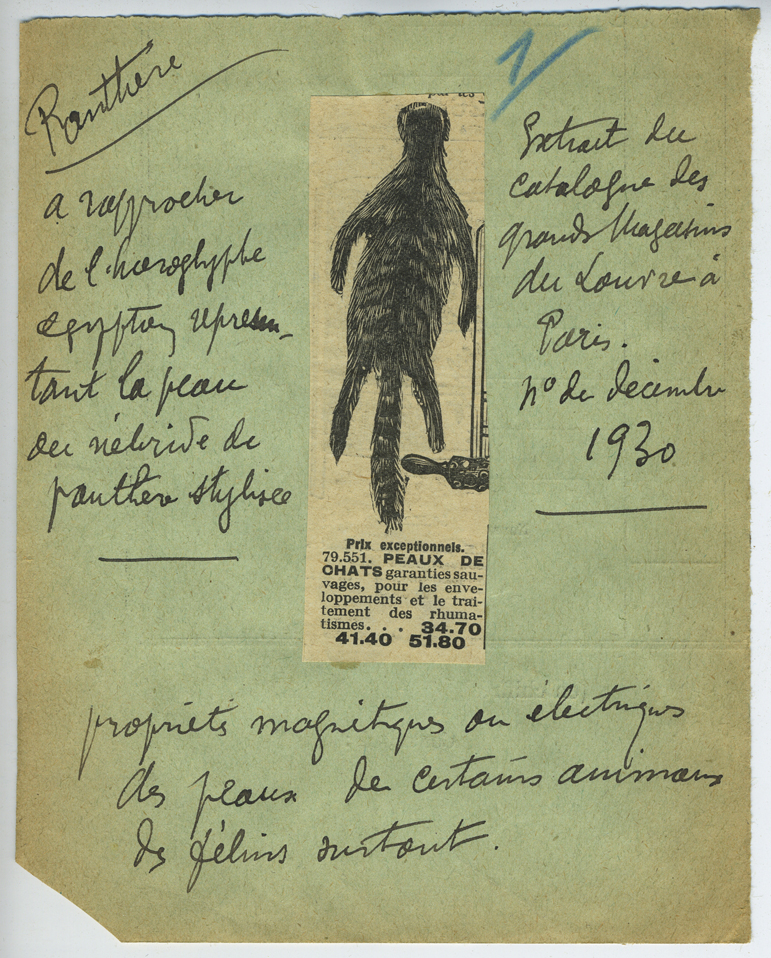 Panthère
a rapprocher
de l'hieroglyphe
egyptien represen-
tant la peau
ou nébride de
panthère stylisée
par les
Prix exceptionnels.
79.551. PEAUX DE
CHATS garanties sau-
vages, pour les enve-
loppements et le trai-
tement des rhuma-
tismes. . . 34.70
41.40 51.80
Extrait du
catalogue des
grands Magasins
du Louvre à
Paris.
n° de décembre
1930
propriétés magnétiques ou électriques
des peaux de certains animaux
des félins surtout.